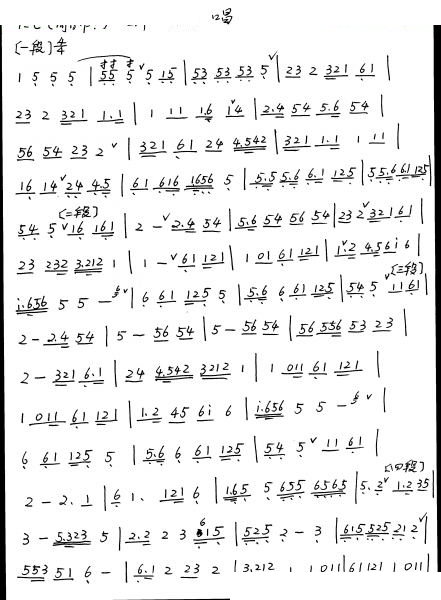 唱
(一段) 4/4
1 5 5 5 | 55 5 ˅5 15 | 53 53 53 5 ˅| 23 2 321 61 |
23 2 321 1.1 | 1 11 1.6 1˅4 | 2.4 54 5.6 54 |
56 54 23 2 ˅| 321 61 24 4.542 | 321 1.1 1 11 |
16 14 ˅24 4.5 | 61 616 1656 5 | 5.5 5.6 6.1 125 | 55.6 61 125 |
(二段)
54 5 ˅16 161 | 2 - ˅2.4 54 | 5.6 54 56 54 | 23 2 ˅321 61 |
23 232 3.212 1 | 1 - ˅61 121 | 1 01 61 121 | 1˅2 4.56i 6 |
(三段)
i.656 5 5 - ˅| 6 61 125 5 | 5.6 6 61 125 | 54 5 ˅11 61 |
2 - 2.4 54 | 5 - 56 54 | 5 - 56 54 | 56 556 53 23 |
2 - 321 6.1 | 24 4.542 3212 1 | 1 011 61 121 |
1 011 61 121 | 1.2 45 6i 6 | i.656 5 5 - ˅|
6 61 125 5 | 5.6 6 61 125 | 54 5 ˅ 11 61 |
(四段)
2 - 2. 1 | 6 1. 121 6 | 1.65 5 655 6565 | 5. 2˅ 1.2 35 |
3 - 5.323 5 | 2.2 2 3 615 | 525 2 - 3 | 615 525 21 2 ˅|
553 51 6 - | 6.1 2 23 2 | 3.212 1 1 011 | 61 121 1 011 |